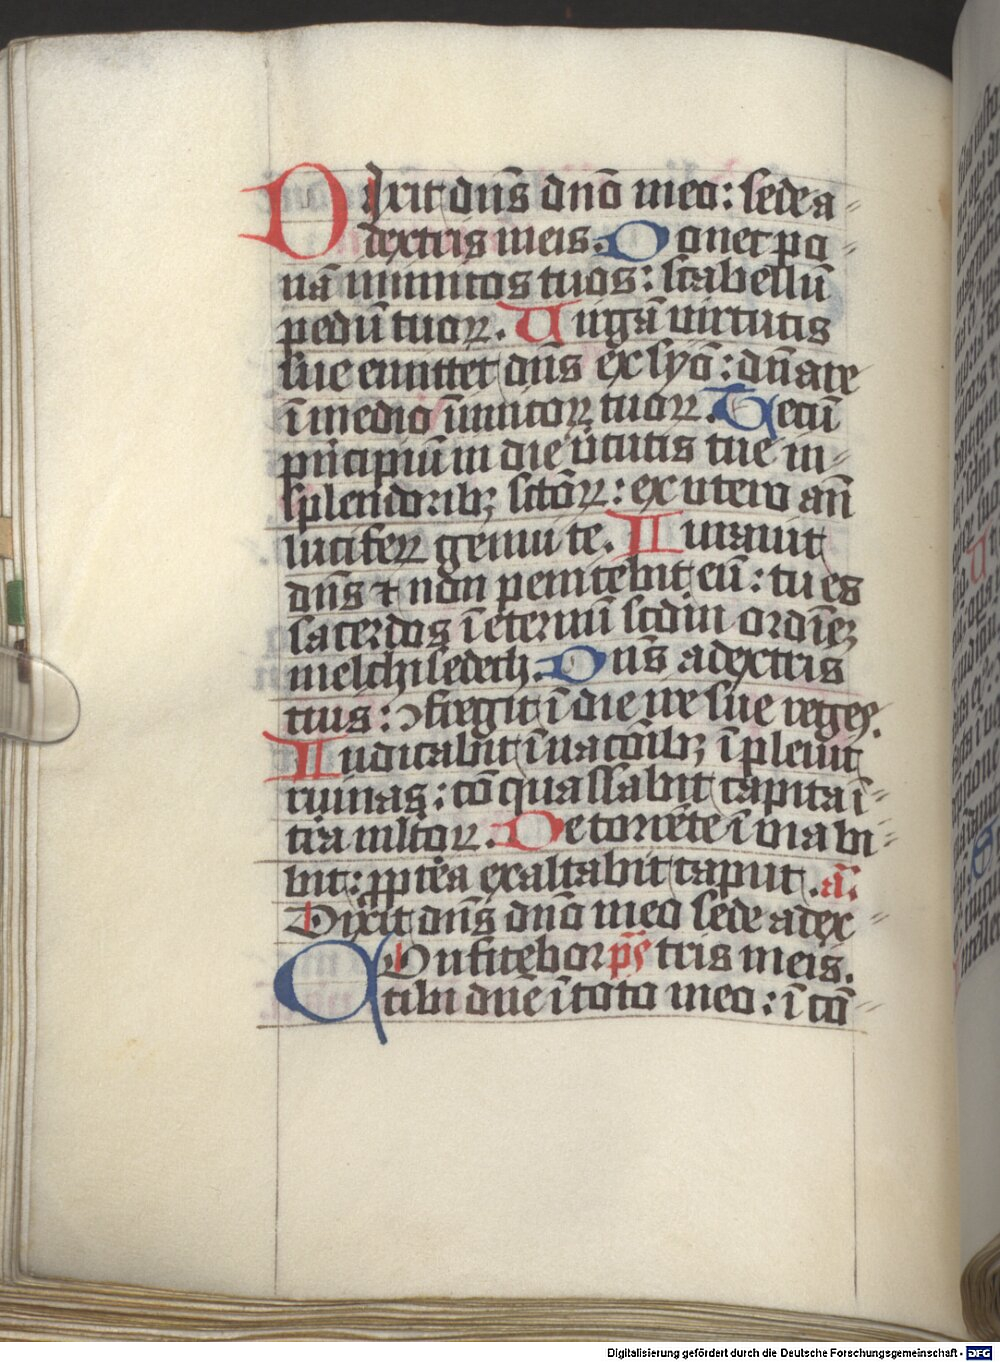 Dixit dn̄s dn̄o meo: sede a
dextris meis. Donec po
nā inimicos tuos: scabellū
pedū tuoꝝ. Uirgā uirtutis
sue emittet dn̄s ex syō: dn̄are
ī medio īimicoꝝ tuoꝝ. Tecū
pͥncipiū in die ūtutis tue in
splendoribꝫ sc̄tōꝝ: ex utero an̄
lucifeꝝ genui te. Iurauit
dn̄s ⁊ non penitebit eū: tu es
sacerdos ī eternū scd̄m ordīeꝫ
melchisedech. Dn̄s a dextris
tuis: ↄfregit ī die ire sue reges.
Iudicabit ī nacōibꝫ īplebit
ruinas: cōquassabit capita ī
tͥra mltoꝝ. De torrēte ī uia bi
bit: ꝓpͥtea exaltabit caput. a͞.
Dixit dn̄s dn̄o meo sede a dex
Onfitebor p̄s tris meis.
C tibi dn̄e ī toto meo: ī cō
Digitalisierung gefördert durch die Deutsche Forschungsgemeinschaft - DFG